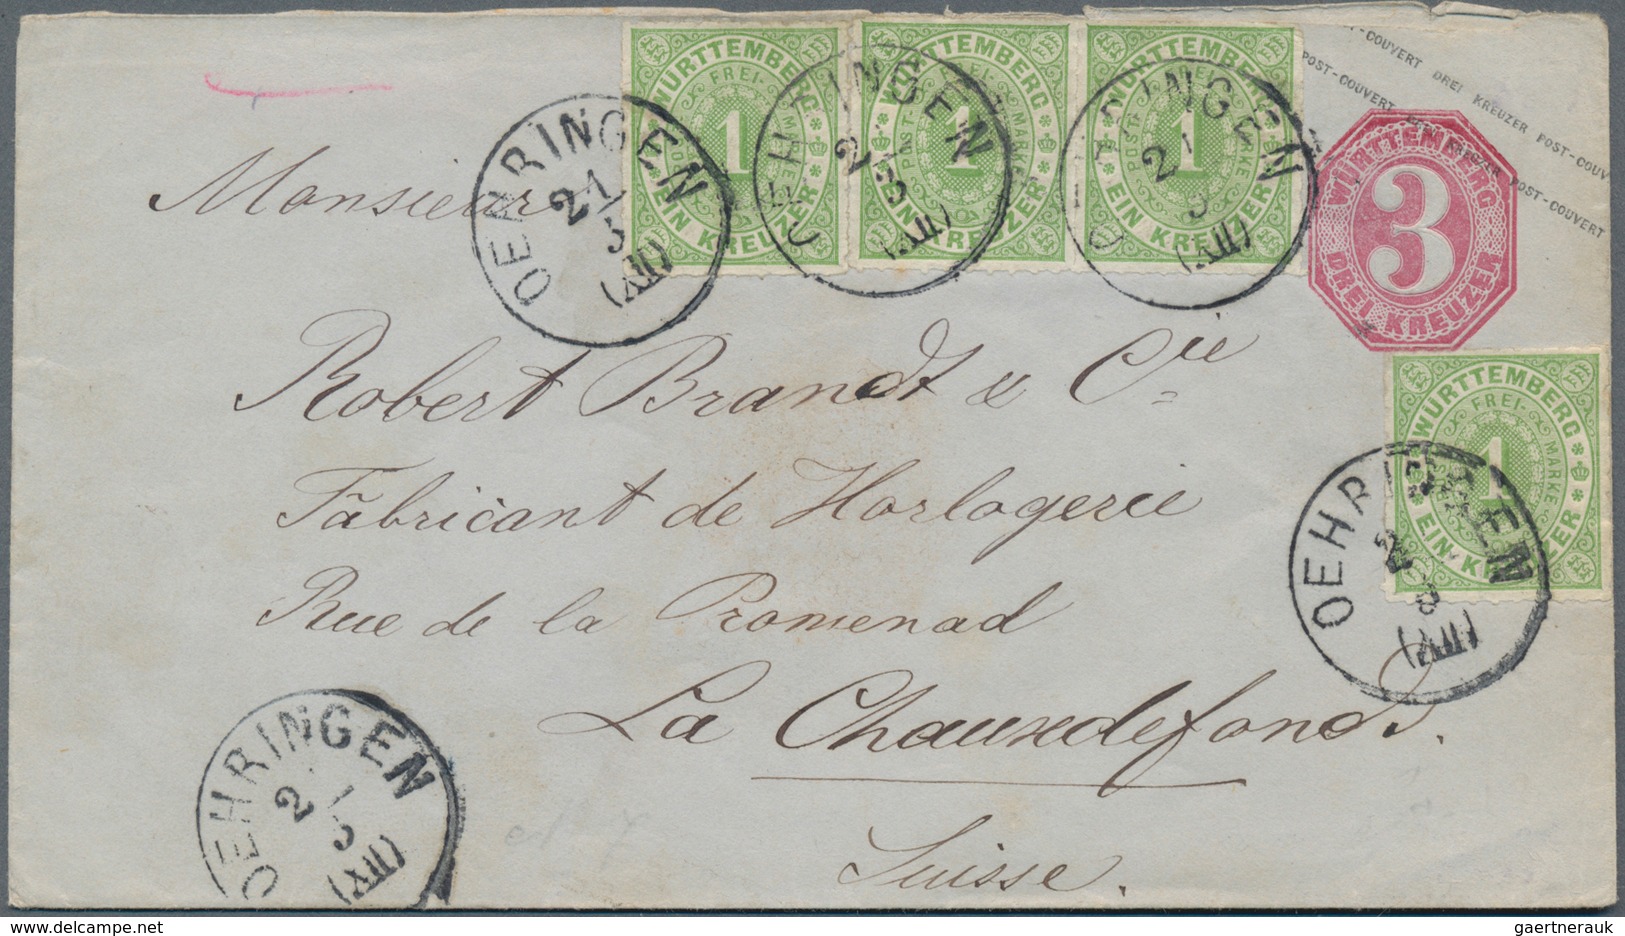 POST-COUVERT DREI KREUZER POST-COUV
POST-COUVERT DREI KREUZER POST-COUVERT
WÜRTTEMBERG
FREI-
POST-
MARKE
1
EIN KREUZER
WÜRTTEMBERG
FREI-
POST-
MARKE
1
EIN KREUZER
WÜRTTEMBERG
FREI-
POST-
MARKE
1
EIN KREUZER
WÜRTTEMBERG
3
DREI KREUZER
OEHRINGEN
21
5
(XII)
OEHRINGEN
21
5
(XII)
OEHRINGEN
21
5
(XII)
Monsieur
Robert Brandt & Cie
Fabricant de Horlogerie
Rue de la Promenad
La Chauxdefonds.
Suisse.
WÜRTTEMBERG
FREI-
MARKE
1
EIN KREUZER
OEHRINGEN
2
5
(XII)
OEHRINGEN
21
5
(XII)
gaertnerauk